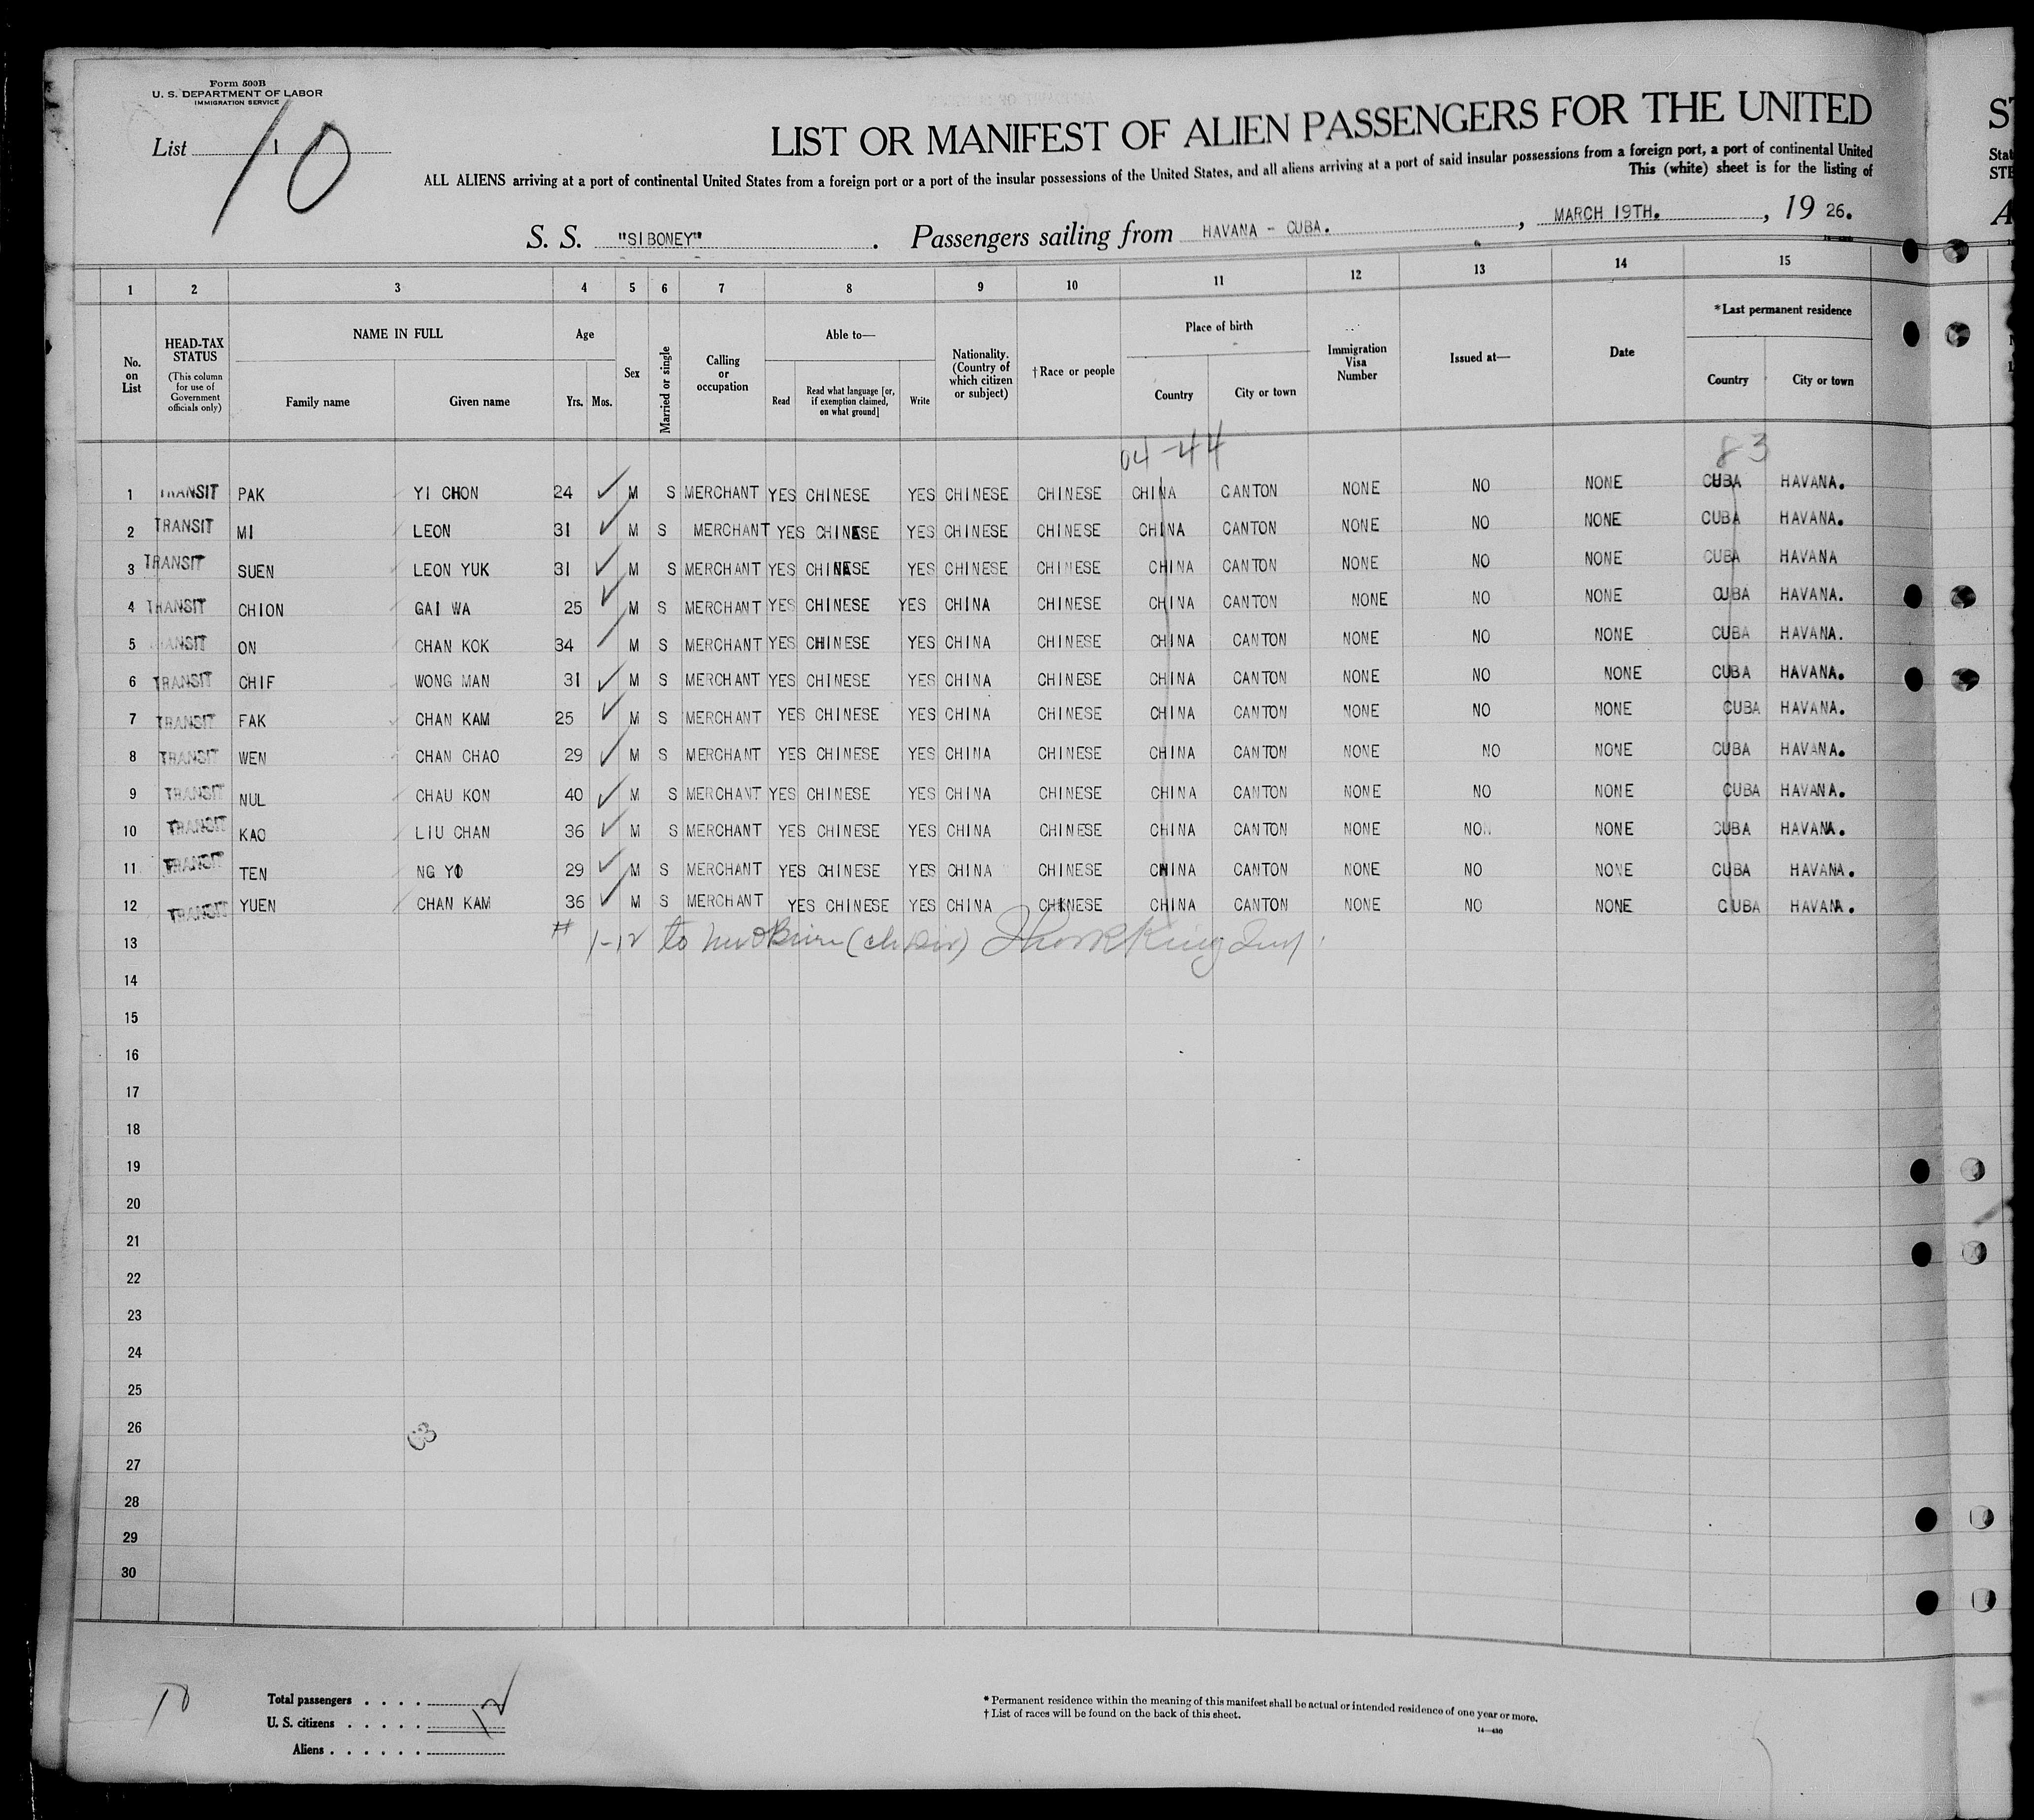 Form 500B
U. S. DEPARTMENT OF LABOR
IMMIGRATION SERVICE
List 1
10
LIST OR MANIFEST OF ALIEN PASSENGERS FOR THE UNITED
ALL ALIENS arriving at a port of continental United States from a foreign port or a port of the insular possessions of the United States, and all aliens arriving at a port of said insular possessions from a foreign port, a port of continental United
This (white) sheet is for the listing of
S. S. "SIBONEY". Passengers sailing from HAVANA - CUBA. , MARCH 19TH. , 19 26.
1 2 3 4 5 6 7 8 9 10 11 12 13 14 15
No. on List
HEAD-TAX STATUS (This column for use of Government officials only)
NAME IN FULL
Family name Given name
Age
Yrs. Mos.
Sex
Married or single
Calling or occupation
Able to—
Read Read what language [or, if exemption claimed, on what ground] Write
Nationality. (Country of which citizen or subject)
† Race or people
Place of birth
Country City or town
Immigration Visa Number
Issued at—
Date
*Last permanent residence
Country City or town
04-44 83
1 TRANSIT PAK YI CHON 24 M S MERCHANT YES CHINESE YES CHINESE CHINESE CHINA CANTON NONE NO NONE CUBA HAVANA.
2 TRANSIT MI LEON 31 M S MERCHANT YES CHINESE YES CHINESE CHINESE CHINA CANTON NONE NO NONE CUBA HAVANA.
3 TRANSIT SUEN LEON YUK 31 M S MERCHANT YES CHINESE YES CHINESE CHINESE CHINA CANTON NONE NO NONE CUBA HAVANA
4 TRANSIT CHION GAI WA 25 M S MERCHANT YES CHINESE YES CHINA CHINESE CHINA CANTON NONE NO NONE CUBA HAVANA.
5 TRANSIT ON CHAN KOK 34 M S MERCHANT YES CHINESE YES CHINA CHINESE CHINA CANTON NONE NO NONE CUBA HAVANA.
6 TRANSIT CHIF WONG MAN 31 M S MERCHANT YES CHINESE YES CHINA CHINESE CHINA CANTON NONE NO NONE CUBA HAVANA.
7 TRANSIT FAK CHAN KAM 25 M S MERCHANT YES CHINESE YES CHINA CHINESE CHINA CANTON NONE NO NONE CUBA HAVANA.
8 TRANSIT WEN CHAN CHAO 29 M S MERCHANT YES CHINESE YES CHINA CHINESE CHINA CANTON NONE NO NONE CUBA HAVANA.
9 TRANSIT NUL CHAU KON 40 M S MERCHANT YES CHINESE YES CHINA CHINESE CHINA CANTON NONE NO NONE CUBA HAVANA.
10 TRANSIT KAO LIU CHAN 36 M S MERCHANT YES CHINESE YES CHINA CHINESE CHINA CANTON NONE NO NONE CUBA HAVANA.
11 TRANSIT TEN NG YO 29 M S MERCHANT YES CHINESE YES CHINA CHINESE CHINA CANTON NONE NO NONE CUBA HAVANA.
12 TRANSIT YUEN CHAN KAM 36 M S MERCHANT YES CHINESE YES CHINA CHINESE CHINA CANTON NONE NO NONE CUBA HAVANA.
13 # 1-12 to
14
15
16
17
18
19
20
21
22
23
24
25
26
27
28
29
30
10
Total passengers . . . .
U. S. citizens . . . . . 12
Aliens . . . . . .
* Permanent residence within the meaning of this manifest shall be actual or intended residence of one year or more.
† List of races will be found on the back of this sheet.
14—430